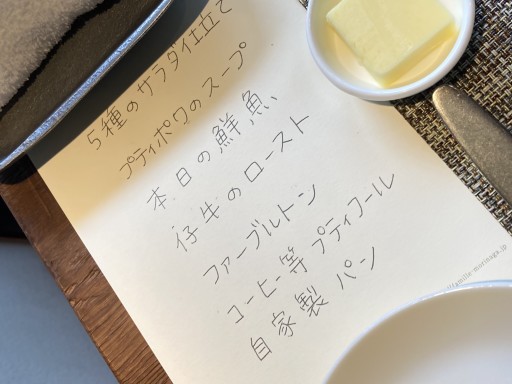 5種のサラダ仕立て
プティポワのスープ
本日の鮮魚
仔牛のロースト
ファーブルトン
コーヒー等 プティフール
自家製 パン